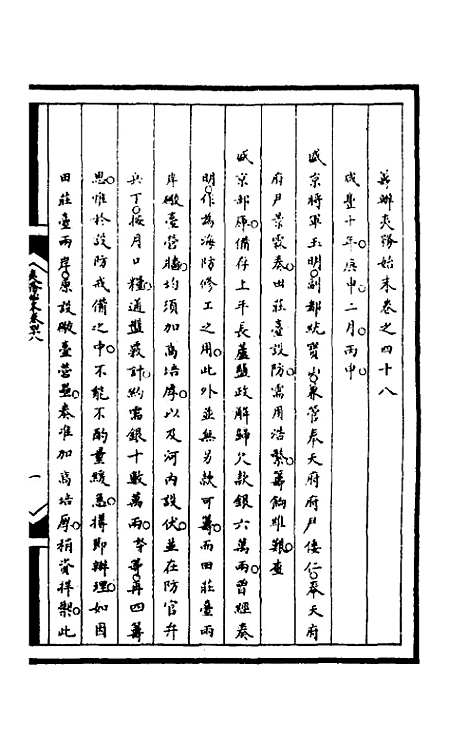 籌辦夷務始末卷之四十八
咸豐十年庚申二月丙申
盛京將軍玉明副都統寶山兼管奉天府府尹倭仁奉天府
府尹景霖奏田莊臺設防需用浩繁籌餉維艱查
盛京部庫備存上年長蘆鹽政解歸欠款銀六萬兩曾經奏
明作為海防修工之用此外並無另款可籌而田莊臺兩
岸礮臺營牆均須加高培厚以及河內設伏並在防官弁
兵丁按月口糧通盤覈計約需銀十數萬兩等再四籌
思惟於設防戒備之中不能不酌量緩急擇即辦理如因
田莊臺兩岸原設礮臺營壘奏准加高培厚捐資捍禦此
夷務始末卷四八
一